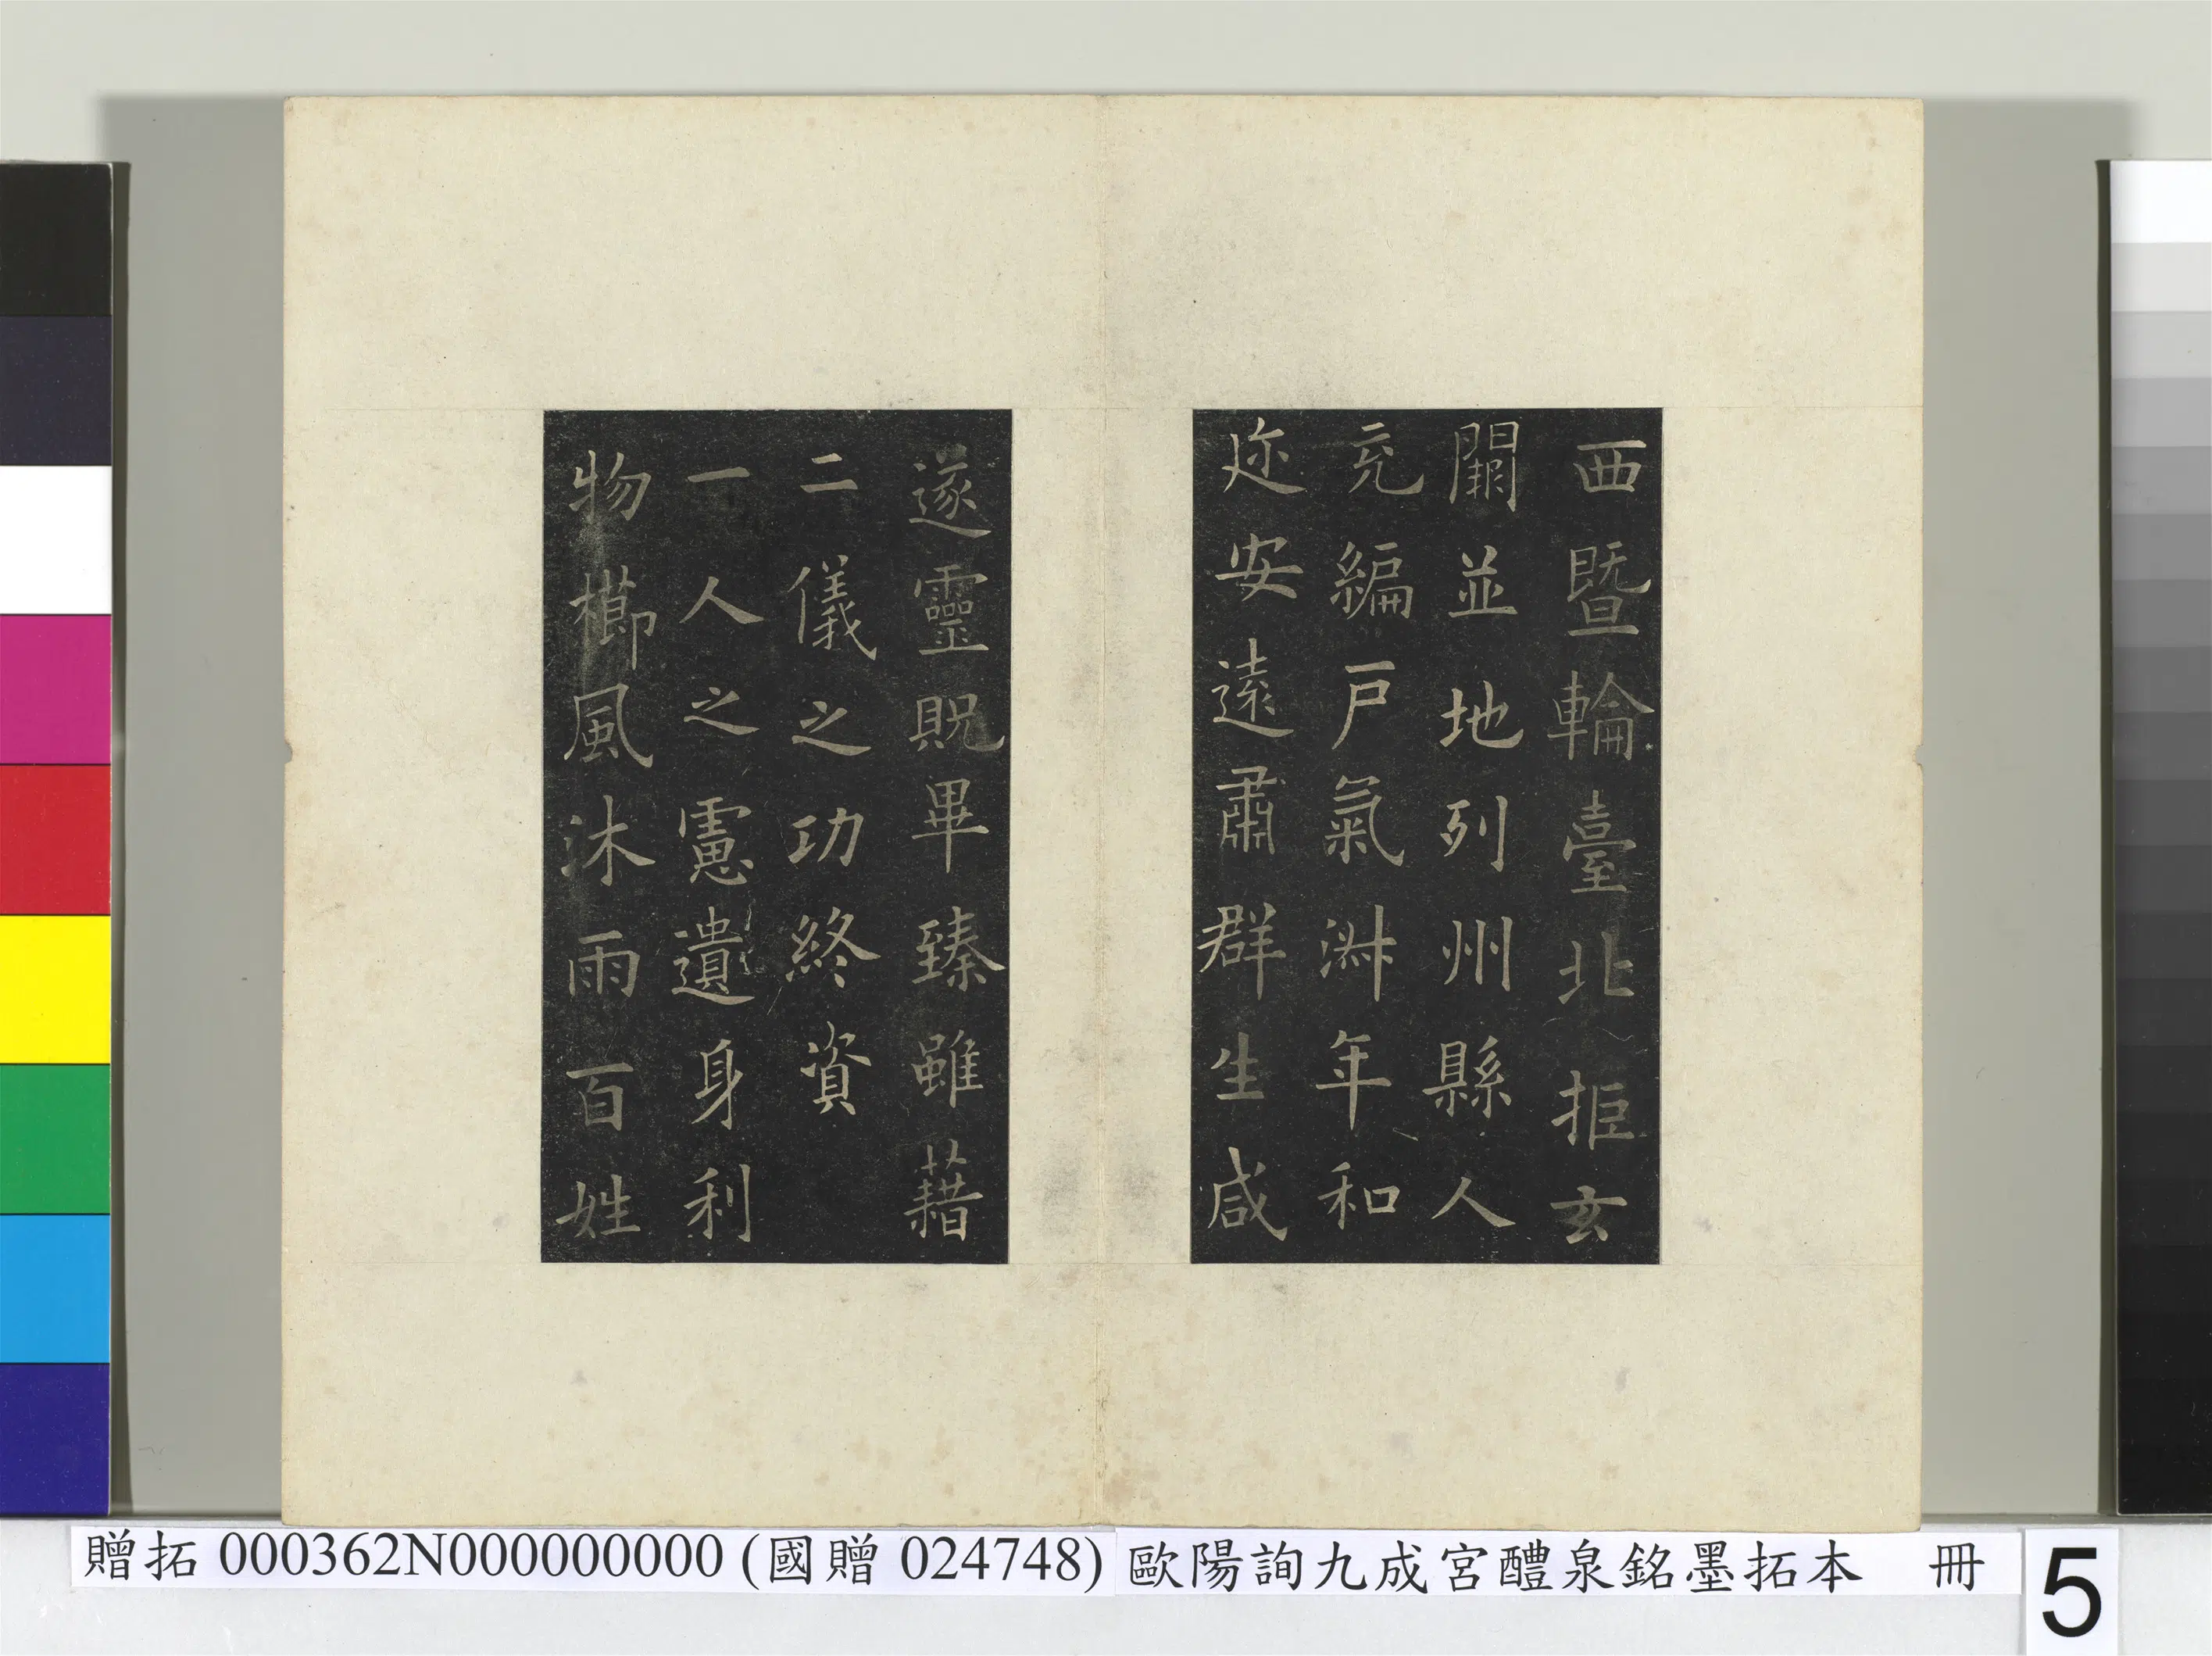 西暨輪臺北拒玄
闕並地列州縣人
充編戶氣淑年和
迩安遠肅群生咸
遂靈貺畢臻雖藉
二儀之功終資
一人之慮遺身利
物櫛風沐雨百姓
贈拓 000362N000000000 (國贈 024748) 歐陽詢九成宮醴泉銘墨拓本 冊
5